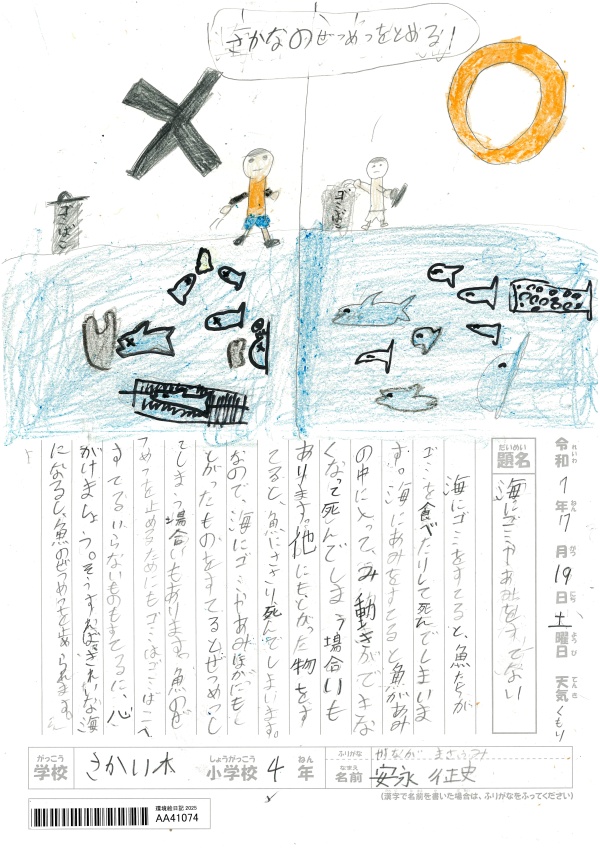 さかなのぜつめつをとめる!
ゴミばこ
ゴミばこ
令和7年7月19日土曜日 天気くもり
れいわ ねん がつ にち ようび てんき
だいめい
題名 海にゴミやあみをすてない
海にゴミをすてると、魚たちが
ゴミを食べたりして死んでしまいま
す。海にあみをすてると魚があみ
の中に入って、み動きができな
くなって死んでしまう場合いも
あります。他にもとがった物をす
てると、魚にささり、死んでしまいます。
なので、海にゴミやあみほかにもと
がったものをすてるとぜつめつし
てしまう場合いもあります。魚のぜ
つめつを止めるためにもゴミはゴミばこへ
すてる。いらないものもすてるに、心
がけましょう。そうすればきれいな海
になるし、魚のぜつめつも止められます。
がっこう しょうがっこう ねん
学校 さかい木 小学校 4年
ふりがな
なまえ
名前 安永 征史
(漢字で名前を書いた場合は、ふりがなをふってください)
環境絵日記 2025
AA41074